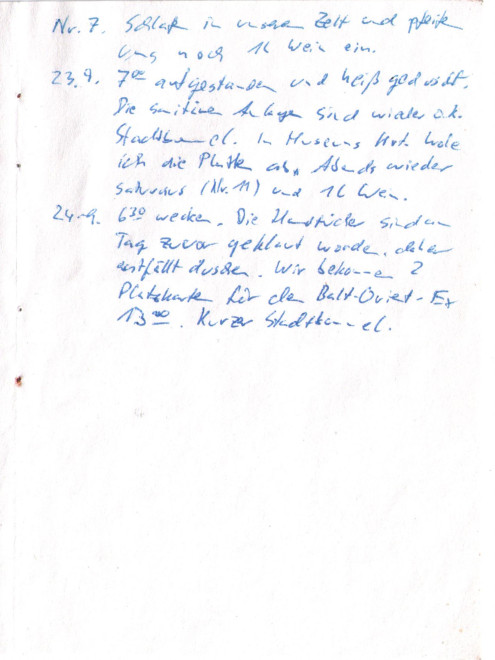 Nr. 7. Schlafe in unserem Zelt und pfeife
uns noch 1l Wein ein.
23.9. 7°° aufgestanden und heiß geduscht.
Die sanitären Anlagen sind wieder o.k.
Stadtbummel. In Museums hole
ich die Platten ab. Abends wieder
(Nr. 11) und 1l Wein.
24.9. 6³⁰ wecken. Die Handtücher sind am
Tag zuvor geklaut worden, daher
entfällt duschen. Wir bekommen 2
Platzkarten für den Balt-Orient-Ex
13°°. Kurzer Stadtbummel.